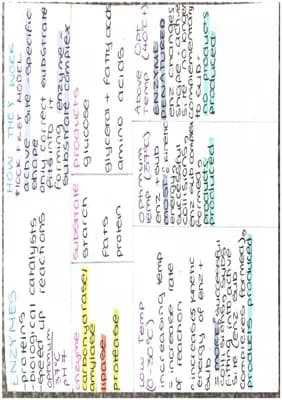 ENZYMES
- proteins
- biological catalysts
- speed up reactions
optimum
37°C
pH 7
HOW THEY WORK
active site - specific
shape
only correct substrate
fits into it
forming enzyme
substrate complex
enzyme
carbohydrase/
amylase
lipase
protease
substrate
starch
fats
protein
products
glucose
glycerol + fatty acids
amino acids
Low Temp
increasing temp
= increase rate
of reaction
increases kinetic
energy of enz +
sub
= more successful
collisions
site (enz sub
products produced
OPTIMUM
temp (37°C)
enz + sub
most kinetic
energy
successful
collisions
enz sub complex
formed
products
produced
Above Opt
Temp (40°C+)
ENZYME
DENATURED
enz changes
shape active
site no longer
to sub.
no products
produced